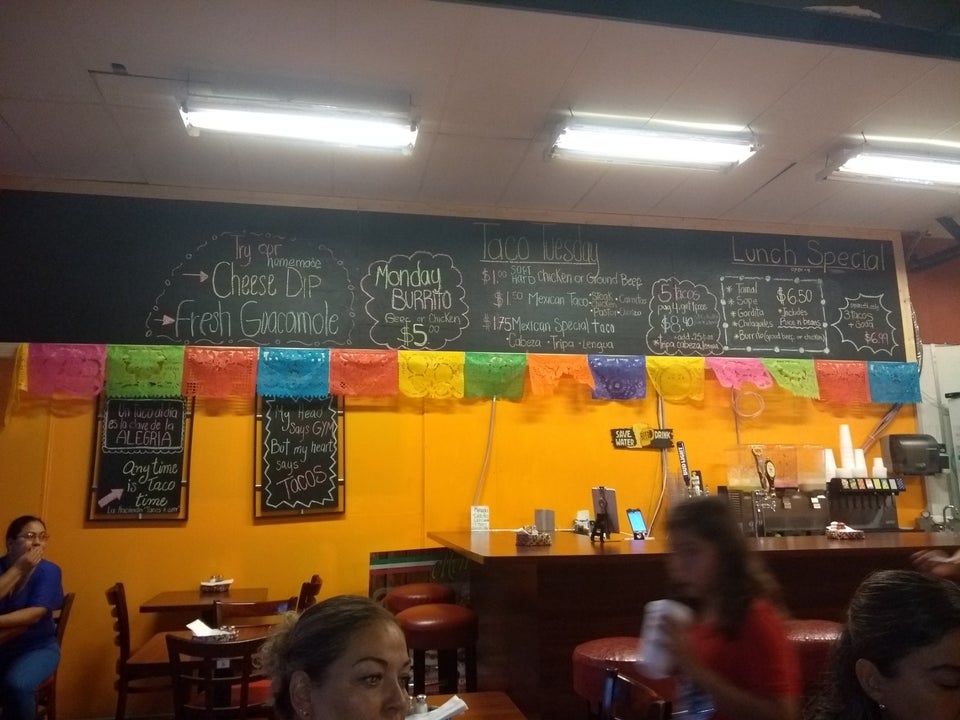 Try our
homemade
Cheese Dip
Fresh Guacamole
Monday
BURRITO
Beef or Chicken
$5.00
Taco Tuesday
$1.00 SOFT HARD Chicken or Ground Beef
$1.50 Mexican Taco
• Steak • Carnitas
• Chicken • Chorizo
• Pastor
$1.75 Mexican Special taco
• Cabeza • Tripa • Lengua
5 Tacos
pay 4 get 1 free
$8.40
Tripa, cabeza, lengua
Lunch Special
* Tamal
* Sope
* Gordita
* Chilaquiles
* Burrito (ground beef or chicken)
$6.50
* Includes
Rice n beans
3 Tacos
+ Soda
$6.99
Un Taco al dia
es la clave de la
ALEGRIA
Any time
is Taco
time
La Hacienda Tacos
My Head
says GYM
But my heart
says
TACOS
SAVE
WATER
DRINK